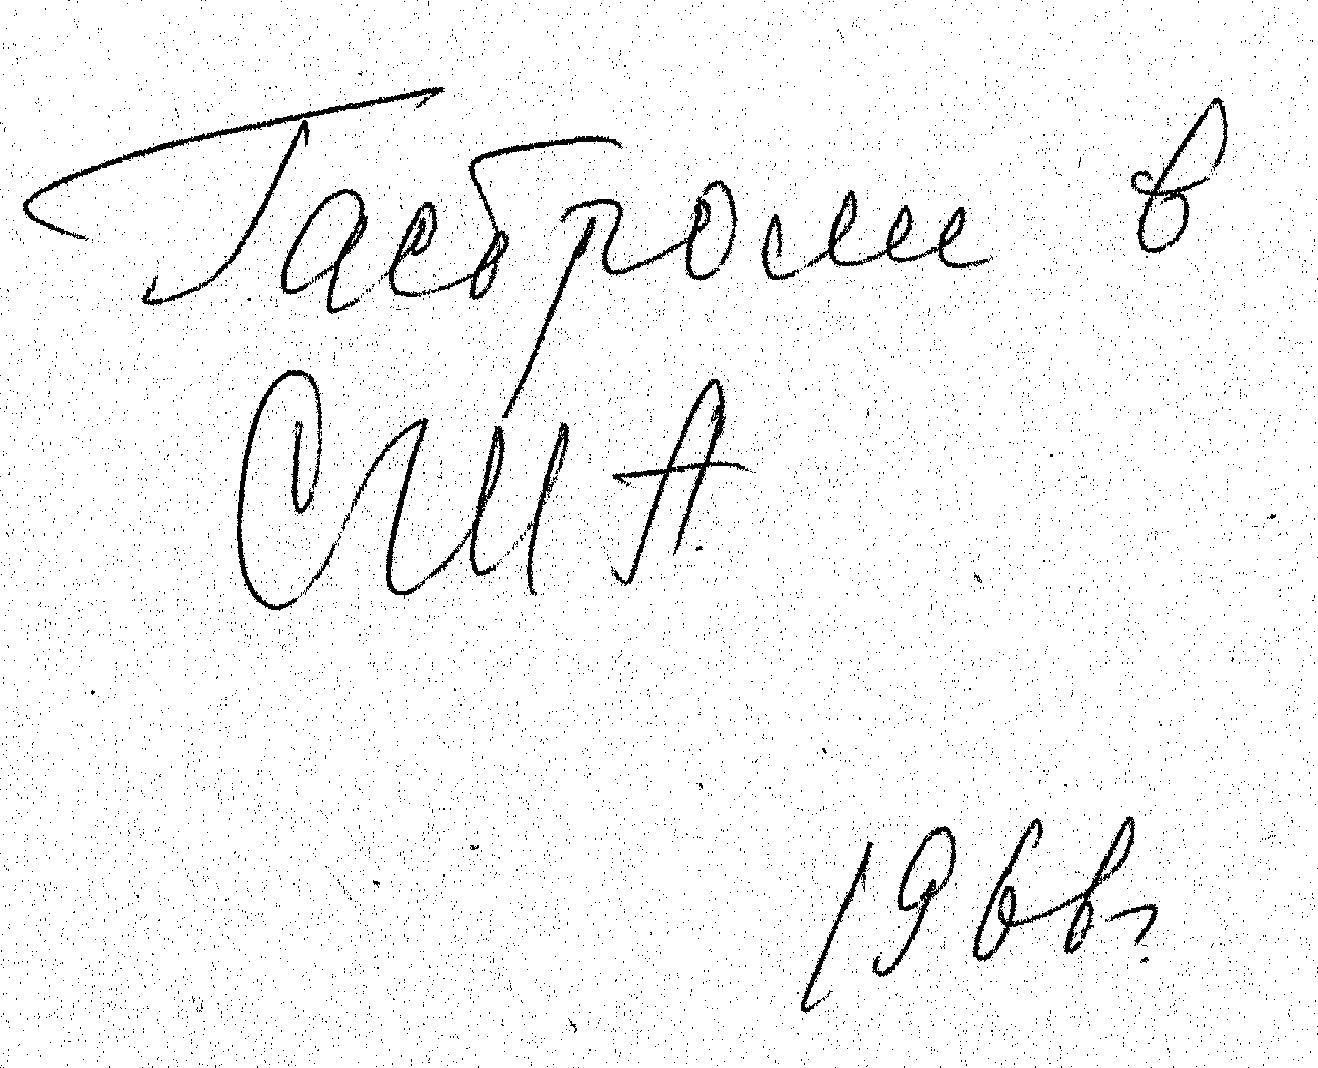 Гастроли в
США
1966г.